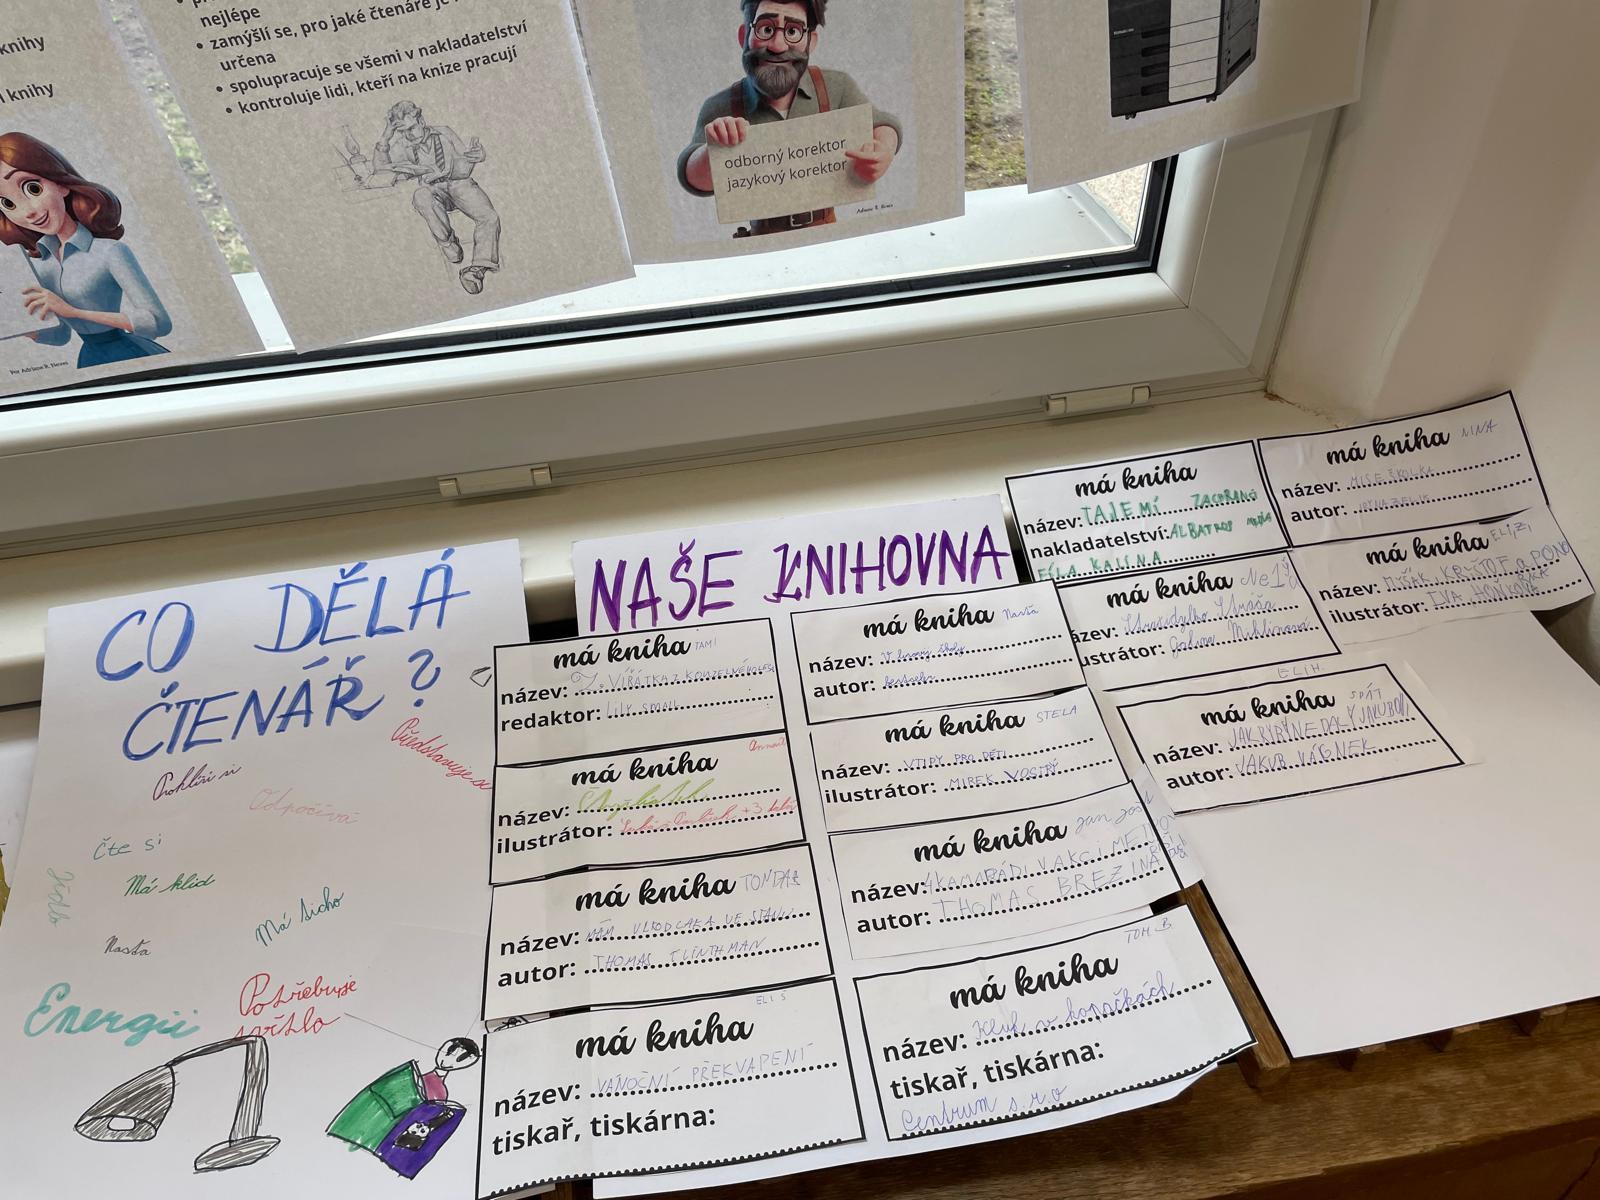 knihy
knihy
nejlépe
• zamýšlí se, pro jaké čtenáře je
určena
• spolupracuje se všemi v nakladatelství
• kontroluje lidi, kteří na knize pracují
Por Adriane R. Neves
odborný korektor
jazykový korektor
CO DĚLÁ
ČTENÁŘ?
Představuje si
Prohlíží si
Odpočívá
Čte si
Jídlo
Má klid
Má ticho
Nasťa
Energii
Potřebuje
světlo
NAŠE KNIHOVNA
má kniha TAMI
název: ZVÍŘÁTKA Z KOUZELNÉHO LESA
redaktor: LILY SMALL
má kniha
název:
ilustrátor: +3
má kniha TONDA
název: MÁM VLKODLAKA VE STANU
autor: THOMAS FLINTHMAN
má kniha ELIS
název: VÁNOČNÍ PŘEKVAPENÍ
tiskař, tiskárna:
má kniha Nasťa
název:
autor:
má kniha STELA
název: VTIPY PRO DĚTI
ilustrátor: MIREK VOSTRÝ
má kniha
název: 4 KAMARÁDI V AKCI
autor: THOMAS BREZINA
má kniha TOM B
název: Kluk v kopačkách
tiskař, tiskárna:
Centrum s.r.o
má kniha
název: TAJEMÍ ZACHRANO
nakladatelství: ALBATROS MEDIA
FÍLA KALINA
má kniha NINA
název: MISE ŠKOLKA
autor:
má kniha
název:
ilustrátor:
má kniha ELIZ
název: MYŠÁK, KRYŠTOF A POND
ilustrátor: IVA HOŇKOVÁ
ELIH.
má kniha SPÁT
název: JAK RYBY NEDALY JAKUBOVI
autor: JAKUB VÁGNER